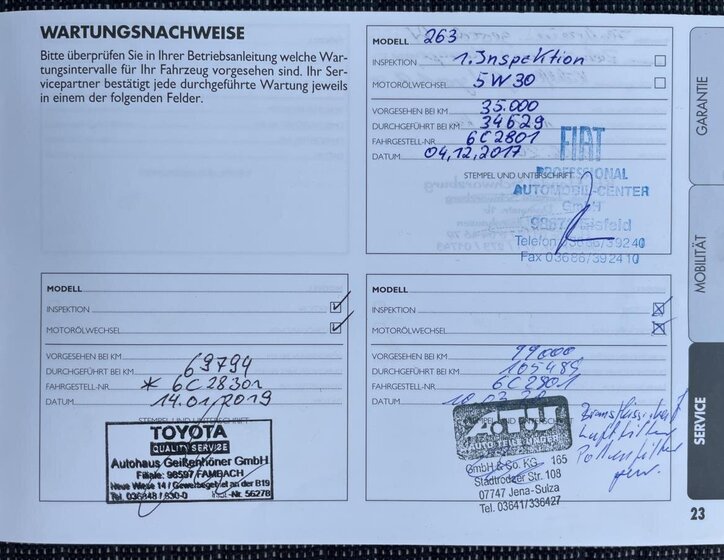 WARTUNGSNACHWEISE
Bitte überprüfen Sie in Ihrer Betriebsanleitung welche War-
tungsintervalle für Ihr Fahrzeug vorgesehen sind. Ihr Ser-
vicepartner bestätigt jede durchgeführte Wartung jeweils
in einem der folgenden Felder.
MODELL 263
INSPEKTION 1. Inspektion
MOTORÖLWECHSEL 5W30
VORGESEHEN BEI KM 35.000
DURCHGEFÜHRT BEI KM 34629
FAHRGESTELL-NR. 6C2801
DATUM 04,12,2017
STEMPEL UND UNTERSCHRIFT
FIAT
PROFESSIONAL
AUTOMOBIL-CENTER
GmbH
Telefon 03686/39240
Fax 03686/392410
MODELL
INSPEKTION
MOTORÖLWECHSEL
VORGESEHEN BEI KM
DURCHGEFÜHRT BEI KM 69794
FAHRGESTELL-NR. * 6C28301
DATUM 14.01.2019
STEMPEL UND UNTERSCHRIFT
TOYOTA
QUALITY SERVICE
Autohaus Geißenhöner GmbH
Filiale: 98597 FAMBACH
Neue Wiese 14 / Gewerbegebiet an der B19
Tel. 036848 / 830-0 Nr. 56278
MODELL
INSPEKTION
MOTORÖLWECHSEL
VORGESEHEN BEI KM 99000
DURCHGEFÜHRT BEI KM 105485
FAHRGESTELL-NR. 6C2801
DATUM
UND UNTERSCHRIFT
A.T.U
AUTO-TEILE-UNGER
GmbH & Co. KG 165
Stadtrodaer Str. 108
07747 Jena-Sulza
Tel. 03641/336427
Luftfilter
Pollenfilter
GARANTIE
MOBILITÄT
SERVICE
23